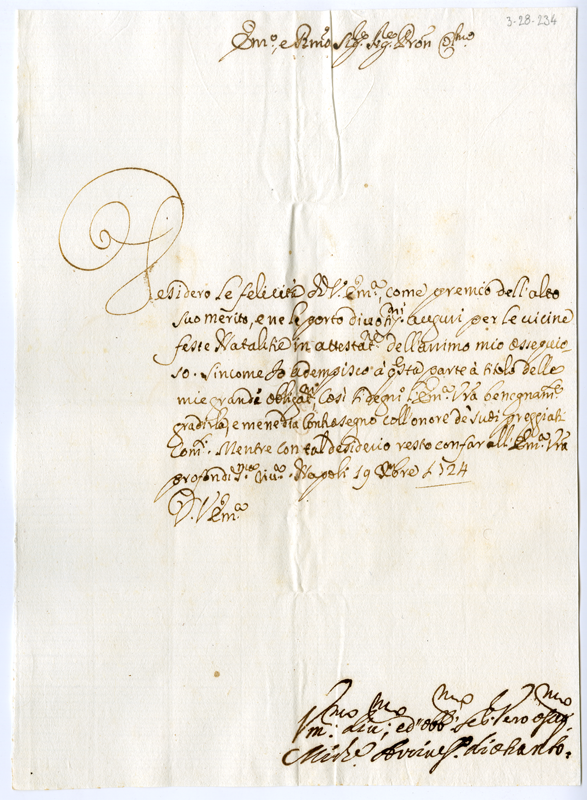 3-28-234
Em.o, e Rm.o Sig.re Sig.re Pron Col.mo
Desidero le felicità di V: Em.a, come premio dell'alto
suo merito, e ne le porto divot.mi auguri per le vicine
feste Natalitie in attestat.e dell'animo mio ossequio-
so. Sincome Io adempisco à q.sta parte à titolo delle
mie grandi obligat.ni Così si degni l'Em.a Vra benegnam.te
gradirla, e mene dia contrasegno coll'onore de suoi preggiati
Com.i. Mentre con tal desiderio resto con far all' Em.a Vra
profondiss.ma riv.a. Napoli 19 Xbre 1724
D. V. Em.a
Um.mo div.mo, ed obb.mo Se.re vero osseq.mo
Mich.